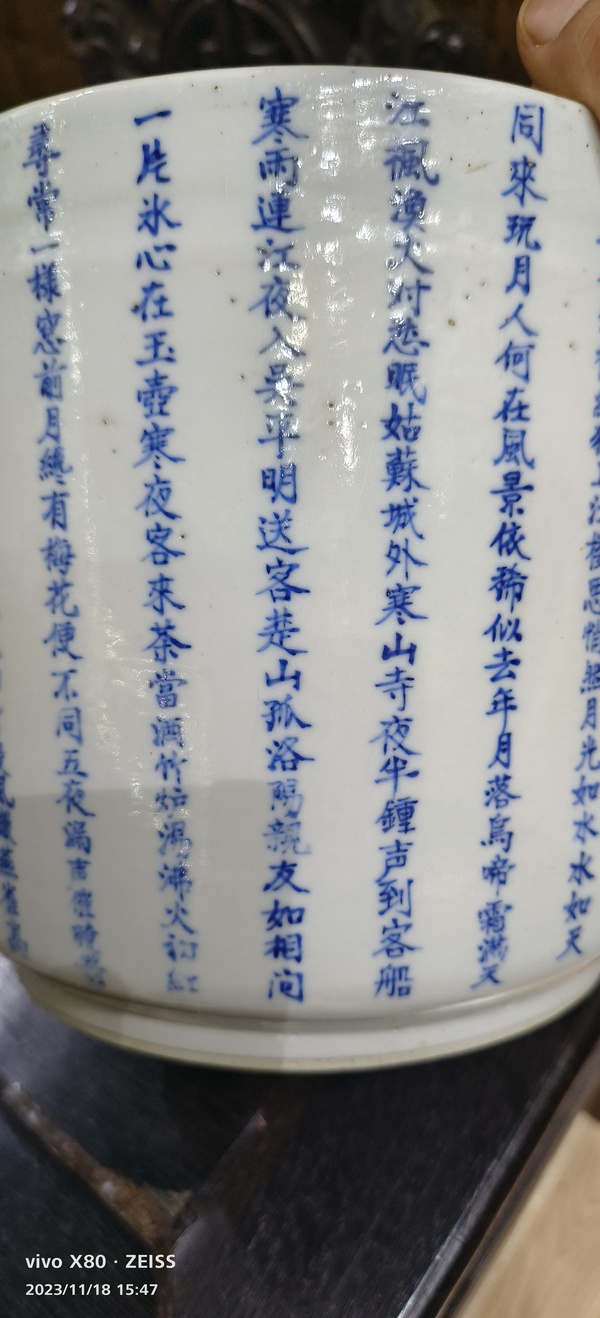 上江樓思悄然月光如水水如天
同來玩月人何在風景依稀似去年月落烏啼霜滿天
江楓漁火对愁眠姑蘇城外寒山寺夜半鍾声到客船
寒雨連江夜入吳平明送客楚山孤洛陽親友如相问
一片氷心在玉壺寒夜客來茶當酒竹炉湯沸火初紅
尋常一樣窓前月纔有梅花便不同五夜漏声催曉箭
風微燕雀高
vivo X80 · ZEISS
2023/11/18 15:47